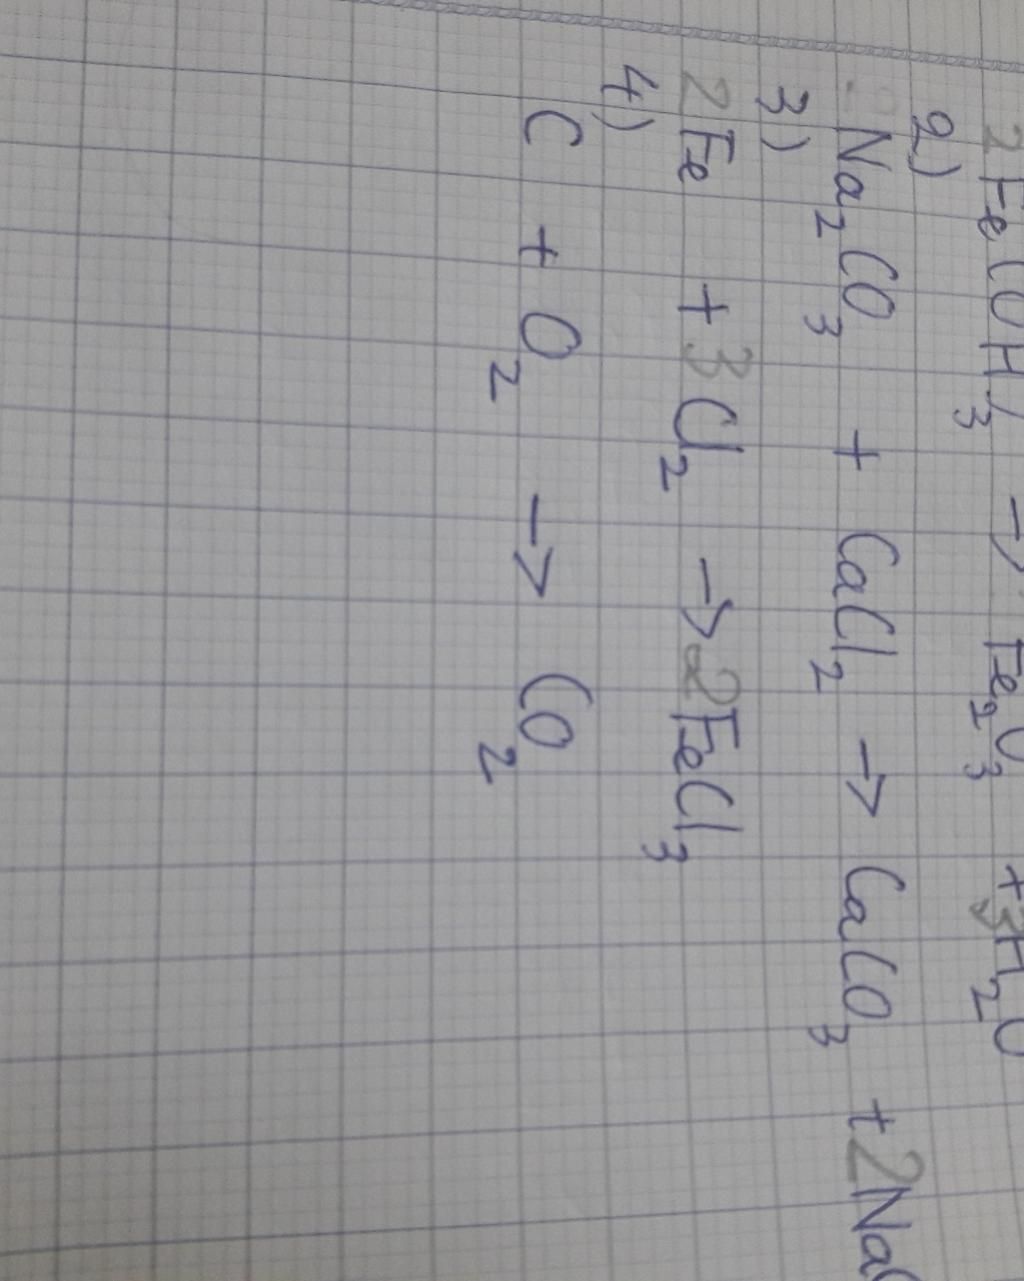 2Fe(OH)₃ → Fe₂O₃ + 3H₂O
2)
Na₂CO₃ + CaCl₂ → CaCO₃ + 2NaC
3)
2Fe + 3Cl₂ → 2FeCl₃
4)
C + O₂ → CO₂